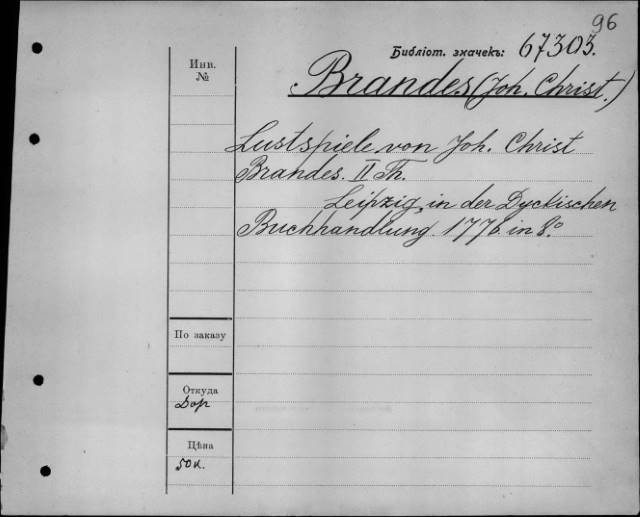 96
Библіот. значекъ: 67303.
Инв.
№
Brandes (Joh. Christ.)
Lustspiele von Joh. Christ
Brandes. II Th.
Leipzig, in der Dyckischen
Buchhandlung 1776 in 8.º
По заказу
Откуда
Дор
Цѣна
50 к.